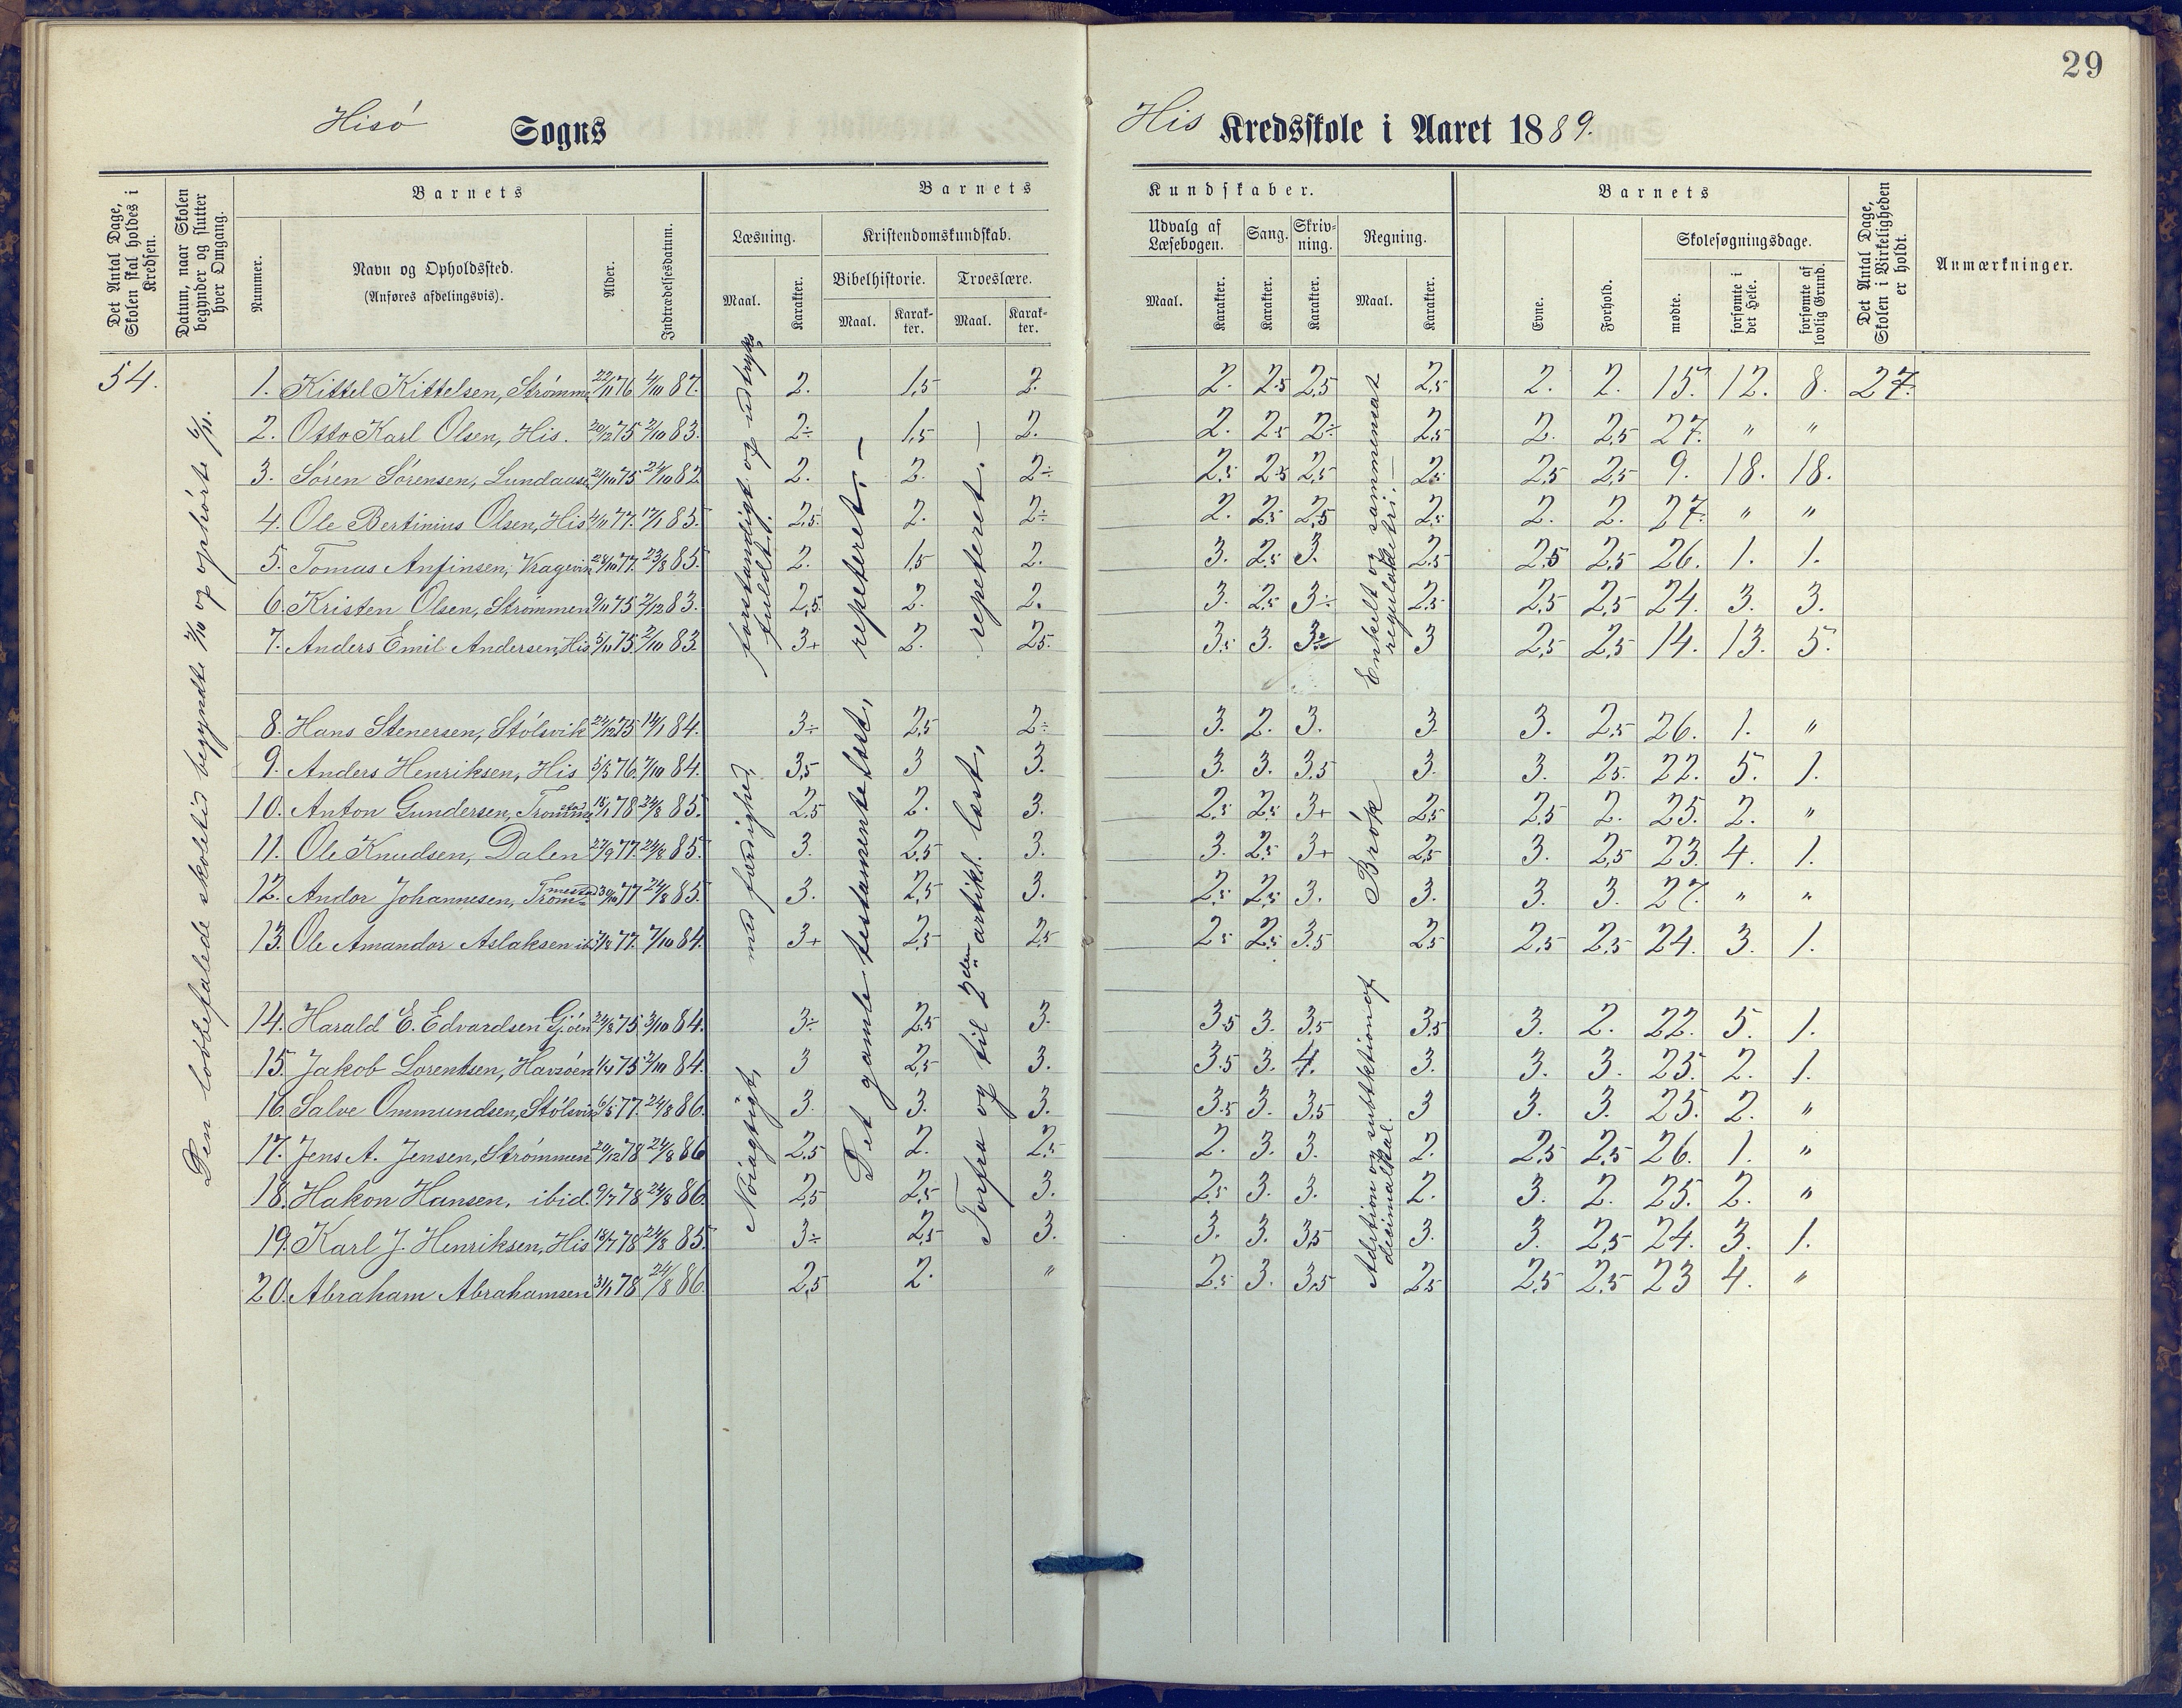 29
Hisö Sogns
His Kredsskole i Aaret 1889.
Det Antal Dage, Skolen skal holdes i Kredsen.
Datum, naar Skolen begynder og slutter hver Omgang.
Barnets
Nummer.
Navn og Opholdssted.
(Anføres afdelingsvis).
Alder.
Indtrædelsesdatum.
Barnets Kundskaber.
Læsning.
Maal.
Karakter.
Kristendomskundskab.
Bibelhistorie.
Maal.
Karakter.
Troeslære.
Maal.
Karakter.
Udvalg af Læsebogen.
Maal.
Karakter.
Sang.
Karakter.
Skrivning.
Karakter.
Regning.
Maal.
Karakter.
Barnets
Evne.
Forhold.
Skolesøgningsdage.
mødte.
forsømte i det Hele.
forsømte af lovlig Grund.
Det Antal Dage, Skolen i Virkeligheden er holdt.
Anmærkninger.
54.
Den lovbefalede skoletid begyndte 2/10 og ophørte 6/11.
Nöiagtigt, med færdighed, forstandigt og udtryksfuldt.
Det gamle testamente læst, repeteret. —
Forfra og til 2den artikl. læst, repeteret. —
Adition og subtktion af decimaltal.
Brök
Enkelt og sammensat reguladetri. —
1. Kittel Kittelsen, Strømmen 22/11 76 4/10 87. 2. 1,5 2. 2. 2,5 2,5 2,5 2. 2. 15. 12. 8. 27.
2. Otto Karl Olsen, His. 20/12 75 2/10 83. 2÷ 1,5 2. 2. 2,5 2÷ 2,5 2. 2,5 27. " "
3. Søren Sørensen, Lundaasen 21/10 75 24/10 82 2. 2. 2÷ 2,5 2,5 2,5 2,5 2,5 2,5 9. 18. 18.
4. Ole Bertinius Olsen, His 4/11 77. 17/1 83. 2,5. 2. 2÷ 2. 2,5 2,5 2,5 2. 2. 27. " "
5. Tomas Anfinsen, Kragevik 28/10 77. 23/8 85. 2. 1,5 2. 3. 2,5 3. 2,5 2,5 2,5 26. 1. 1.
6. Kristen Olsen, Strømmen 9/11 75 2/12 83. 2,5. 2. 2. 3. 2,5 3÷ 2,5 2,5 2,5 24. 3. 3.
7. Anders Emil Andersen, His 5/11 75. 2/10 83. 3+ 2. 2,5. 3,5 3. 3÷ 3 2,5 2,5 14. 13. 5.
8. Hans Stenersen, Stölsvik 24/12 75 14/1 84. 3÷ 2,5 2÷ 3. 2. 3. 3. 3. 2,5 26. 1. "
9. Anders Henriksen, His 5/3 76. 7/10 84. 3,5 3 3. 3. 3. 3,5 3. 3. 2,5. 22. 5. 1.
10. Anton Gundersen, Tromme 18/1 78 24/8 85. 2,5 2. 3. 2,5 2,5 3+ 2,5 2,5 2. 25. 2. "
11. Ole Knudsen, Dalen 27/9 77. 24/8 85. 3. 2,5 3. 3. 2,5 3+ 2,5 3. 2,5 23. 4. 1.
12. Andor Johannesen, Trommestad 30/10 77 24/8 85. 3. 2,5 3. 2,5 2,5 3. 3. 3. 3. 27. " "
13. Ole Amandor Aslaksen ib 7/8 77. 7/10 84. 3+ 2,5 2,5 2,5 2,5 3,5 2,5 2,5 2,5 24. 3. 1.
14. Harald E. Edvardsen Gjöen 24/8 75 3/10 84. 3÷ 2,5 3. 3,5 3. 3,5 3,5 3. 2. 22. 5. 1.
15. Jakob Lorentsen, Havsöen 1/4 75 2/10 84. 3 2,5 3. 3,5 3. 4. 3. 3. 3. 25. 2. 1.
16. Salve Ommundsen, Stölsvik 6/5 77. 24/8 86. 3. 3. 3. 3,5 3. 3,5 3 3. 3. 25. 2. "
17. Jens A. Jensen, Strømmen 20/12 78 24/8 86 2,5 2. 2,5 2. 3. 3. 2. 2,5 2,5 26. 1. "
18. Hakon Hansen, ibid. 9/7 78 24/8 86. 2,5 2,5 3. 2,5 3. 3. 2. 3. 2. 25. 2. "
19. Karl J. Henriksen, His 18/7 78 24/8 85. 3÷ 2,5 3. 3. 3. 3,5 3. 3. 2,5 24. 3. 1.
20. Abraham Abrahamsen 3/1 78 24/8 86. 2,5 2. " 2,5 3. 3,5 2,5 2,5 2,5 23 4. "